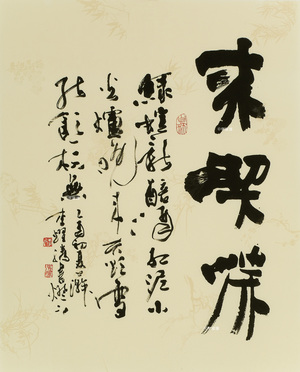 来喫茶
綠蟻新醅酒紅泥小
火爐晚来天欲雪
能飲一杯無
乙酉初夏